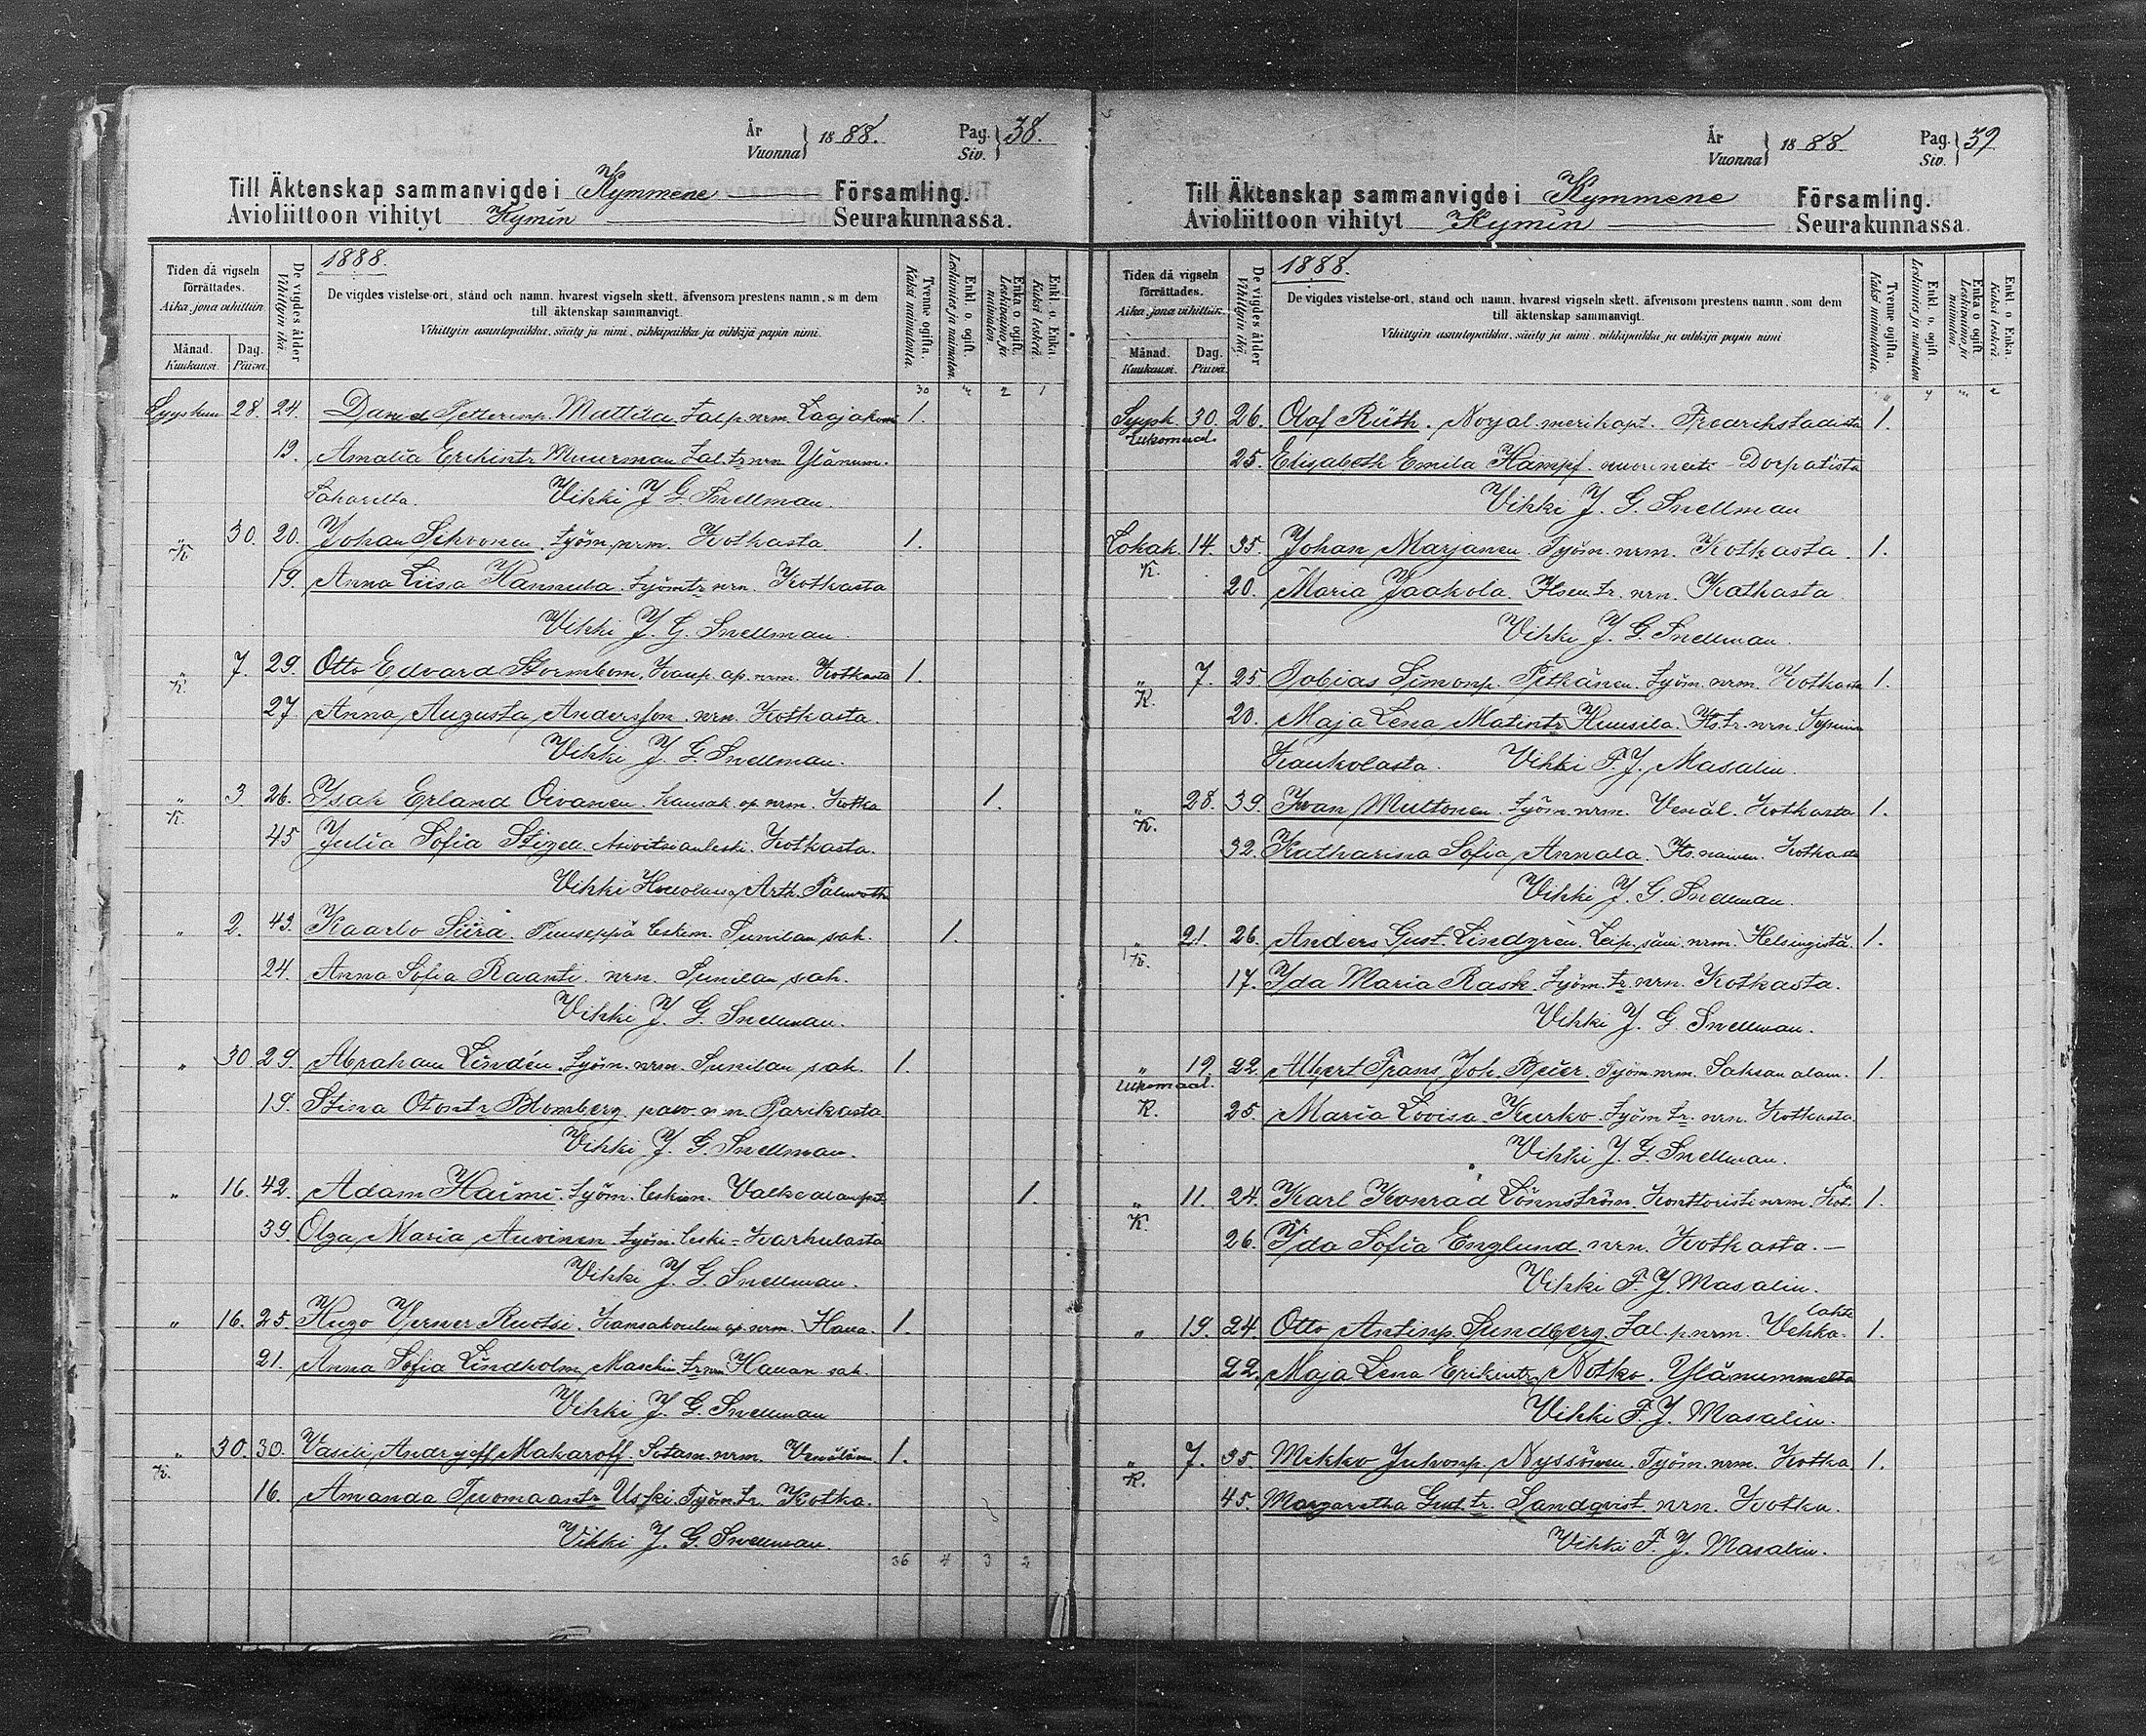 År
Vuonna } 18 88. Pag.
Siv. } 38.
Till Äktenskap sammanvigde i Kymmene Församling.
Avioliittoon vihityt Kymin Seurakunnassa.
Tiden då vigseln förrättades.
Aika, jona vihittiin.
Månad.
Kuukausi.
Dag.
Päivä.
De vigdes ålder
Vihittyin ikä.
1888.
De vigdes vistelse-ort, stånd och namn, hvarest vigseln skett, äfvensom prestens namn, som dem
till äktenskap sammanvigt.
Vihittyin asuntopaikka, sääty ja nimi, vihkipaikka ja vihkijä papin nimi.
Tvenne ogifta.
Kaksi naimatonta.
Enkl. o. ogift.
Leskimies ja naimaton.
Enka o ogift.
Leskivaimo ja naimaton.
Enkl. o. Enka.
Kaksi leskeä.
30 2 1
Syyskuu 28. 24. David Petterinp. Mattila. Tal.p. nrm. Laajakos 1.
19. Amalia Erikintr Muurman Tal.tr nrn Ylänum.
Vihki J G Snellman.
" K 30. 20. Johan Sihvonen. työm. nrm. Kotkasta 1.
19. Anna Liisa Hannula. työmtr nrn. Kotkasta
Vihki J. G. Snellman.
" K. 7. 29. Otto Edvard Stormbom. Kaup. ap. nrm. Kotkasta 1.
27. Anna Augusta Andersson. nrn. Kotkasta
Vihki J G. Snellman.
" K. 3 26. Isak Erland Oivanen. kansak. op nrm. Kotka 1.
45 Julia Sofia Stigell. Kotkasta.
Vihki Arth. Palmroth
" 2. 43. Kaarlo Siira. Puuseppä leskm. Sunilan sah. 1.
24. Anna Sofia Raanti. nrn. Sunilan sah.
Vihki J. G. Snellman.
" 30 29. Abraham Lindén. työm. nrm. Sunilan sah. 1.
19. Stina Otontr Blomberg. nrn. Parikasta
Vihki J. G. Snellman.
" 16. 42. Adam Haimi. työm. leskm. Valkealan 1.
39. Olga Maria Auvinen. työm. leski - Karhulasta
Vihki J. G. Snellman.
" 16. 25. Hugo Verner Ruotsi. Kansakoulun op. nrm. Haua. 1.
21. Anna Sofia Lindholm Maschin. tr nrn Hauan sah.
Vihki J. G. Snellman
" K. 30. 30. Vasili Andryeff Makaroff. Sotam. nrm. Venäläin 1.
16. Amanda Tuomaantr Uski. Työm. tr. Kotka.
Vihki J. G. Snellman.
36 4 3 2
År
Vuonna } 18 88 Pag.
Siv. } 39
Till Äktenskap sammanvigde i Kymmene Församling.
Avioliittoon vihityt Kymin Seurakunnassa.
Tiden då vigseln förrättades.
Aika, jona vihittiin.
Månad.
Kuukausi.
Dag.
Päivä.
De vigdes ålder
Vihittyin ikä.
1888.
De vigdes vistelse-ort, stånd och namn, hvarest vigseln skett, äfvensom prestens namn, som dem
till äktenskap sammanvigt.
Vihittyin asuntopaikka, sääty ja nimi, vihkipaikka ja vihkijä papin nimi
Tvenne ogifta.
Kaksi naimatonta.
Enkl. o. ogift.
Leskimies ja naimaton
Enka o ogift
Leskivaimo ja naimaton.
Enkl. o Enka.
Kaksi leskeä.
Syysk. 30. 26. Olaf Rüth. Norjal. merikapt. Fredrikstadista 1.
Ulkomaal.
25. Elisabeth Emila Hampf. nuori neiti - Dorpatista
Vihki J. G. Snellman
Lokak. K. 14. 35. Johan Marjanen. Työm. nrm. Kotkasta. 1.
20. Maria Jaakola. Itsen. tr. nrn. Kotkasta
Vihki J. G. Snellman.
" K. 7. 25. Tobias Simonp. Pitkänen. työm. nrm. Kotkasta 1.
20. Maja Lena Matintr Kuusila. Its. tr. nrn. Kymin
Kaukolasta. Vihki F. J. Masalin.
" K. 28. 39. Ivan Multonen. työm. nrm. Venäl. Kotkasta 1.
32. Katharina Sofia Annala. Its. nainen. Kotkasta
Vihki J. G. Snellman.
" K. 21. 26. Anders Gust. Lindgrèn. Leip. nrm. Helsingistä. 1.
17. Ida Maria Rask. työm. tr. nrn. Kotkasta.
Vihki J. G Snellman.
" 19. 22. Albert Frans Joh. Beier. Työm nrm. Saksan alam. 1.
Ulkomaal.
K. 25. Maria Lovisa Kurko. työm tr. nrn. Kotkasta.
Vihki J. G. Snellman.
" K. 11. 24. Karl Konrad Lönnström. Konttoristi nrm. Kotka 1.
26. Ida Sofia Englund. nrn. Kotkasta. —
Vihki F. J. Masalin.
" 19. 24. Otto Antinp. Sundberg. Tal. p. nrm. Vehkalahti 1.
22. Maja Lena Erikintr Notko. Ylänummelta
Vihki F. J. Masalin.
" K. 7. 35. Mikko Juhonp. Nyssönen. Työm. nrm. Kotka. 1.
45. Margaretha Gust. tr. Sandqvist. nrn. Kotka.
Vihki F. J. Masalin.